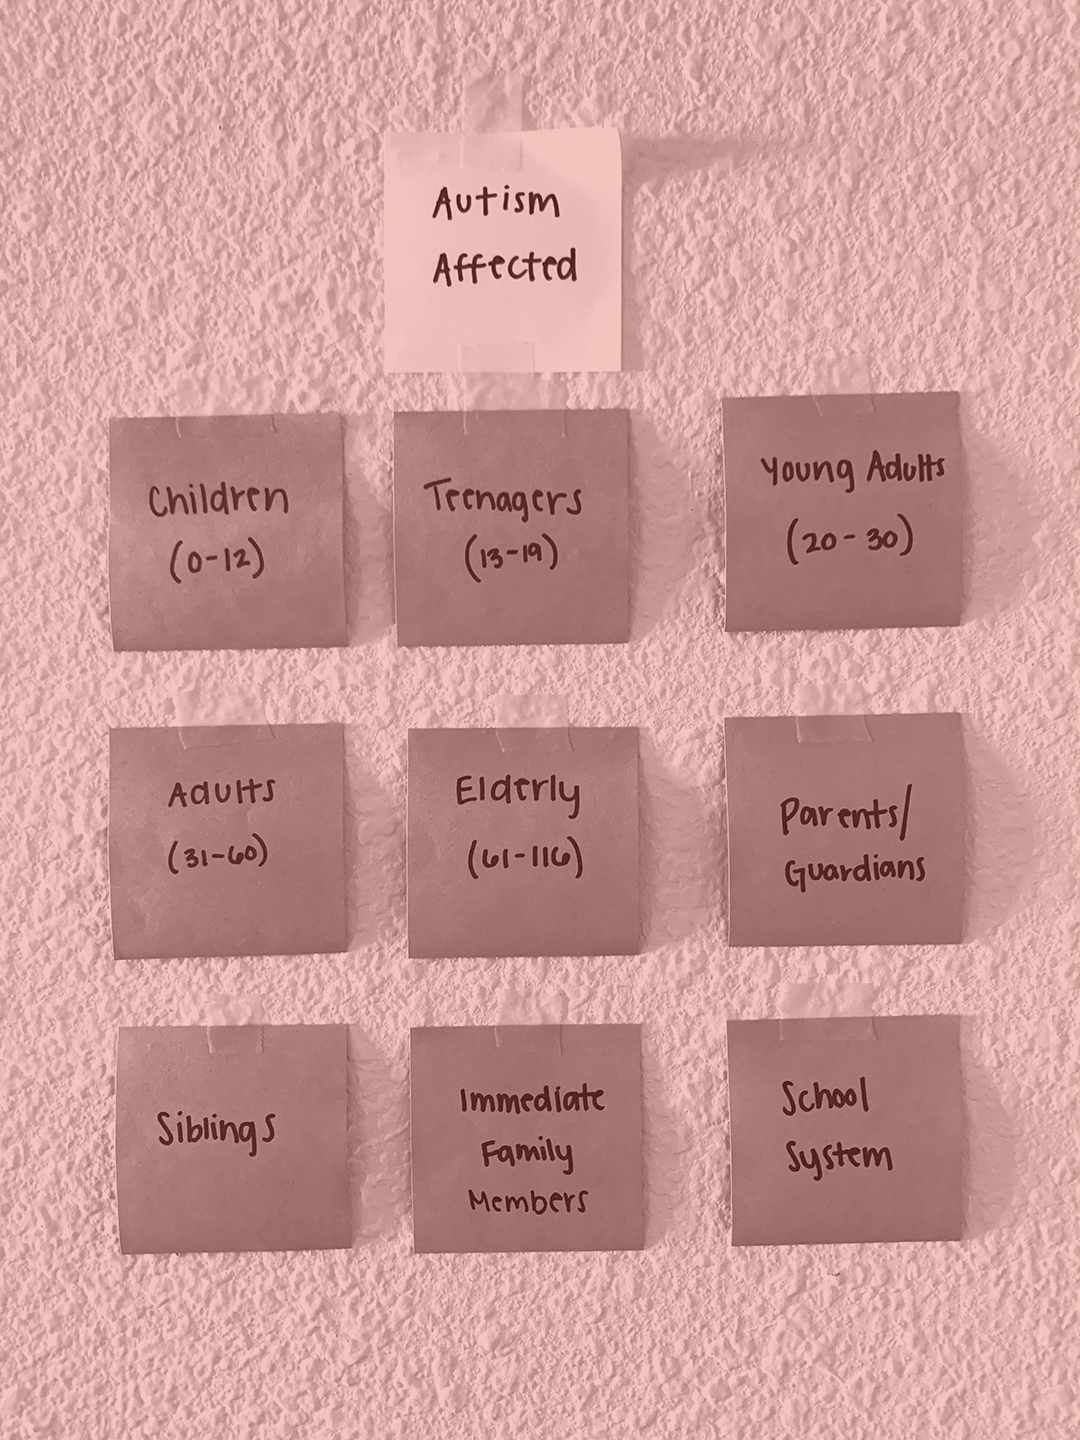 Autism
Affected
Children
(0-12)
Teenagers
(13-19)
Young Adults
(20-30)
Adults
(31-60)
Elderly
(61-116)
Parents/
Guardians
Siblings
Immediate
Family
Members
School
System